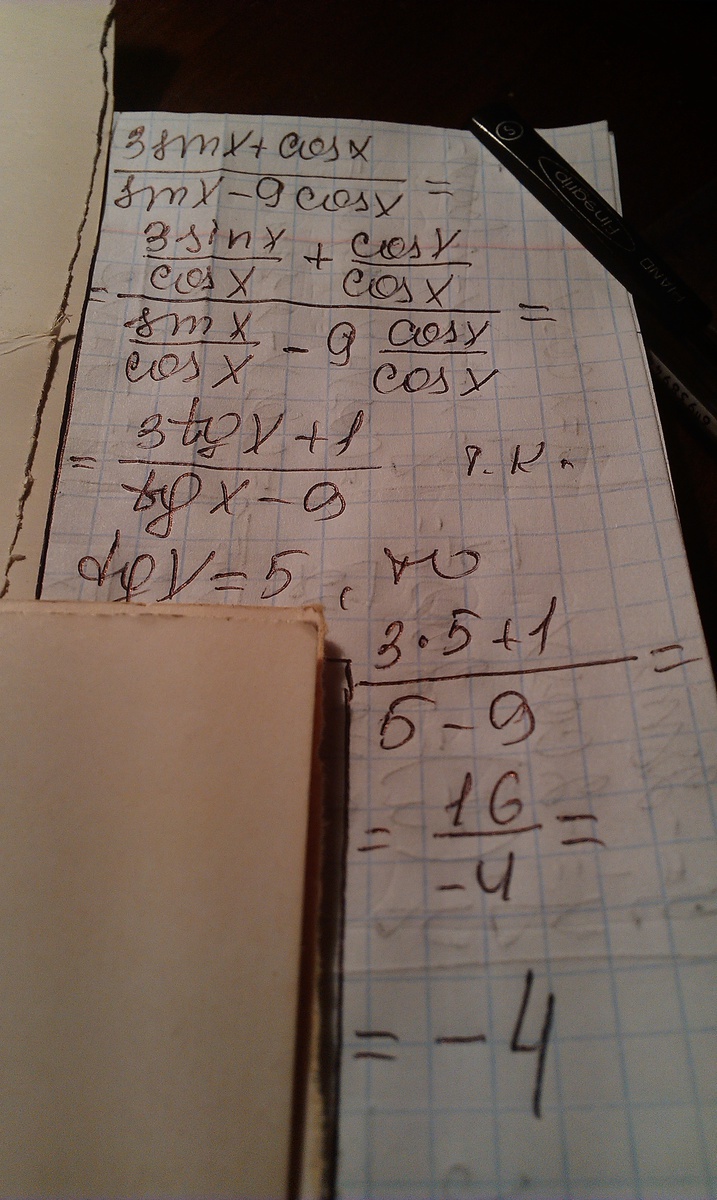 3sinx+cosx
sinx-9cosx =
3sinx + cosx
cosx cosx
= =
sinx - 9 cosx
cosx cosx
3tgx+1
= т.к.
tgx-9
tgx=5, то
3·5+1
=
5-9
16
= =
-4
= -4